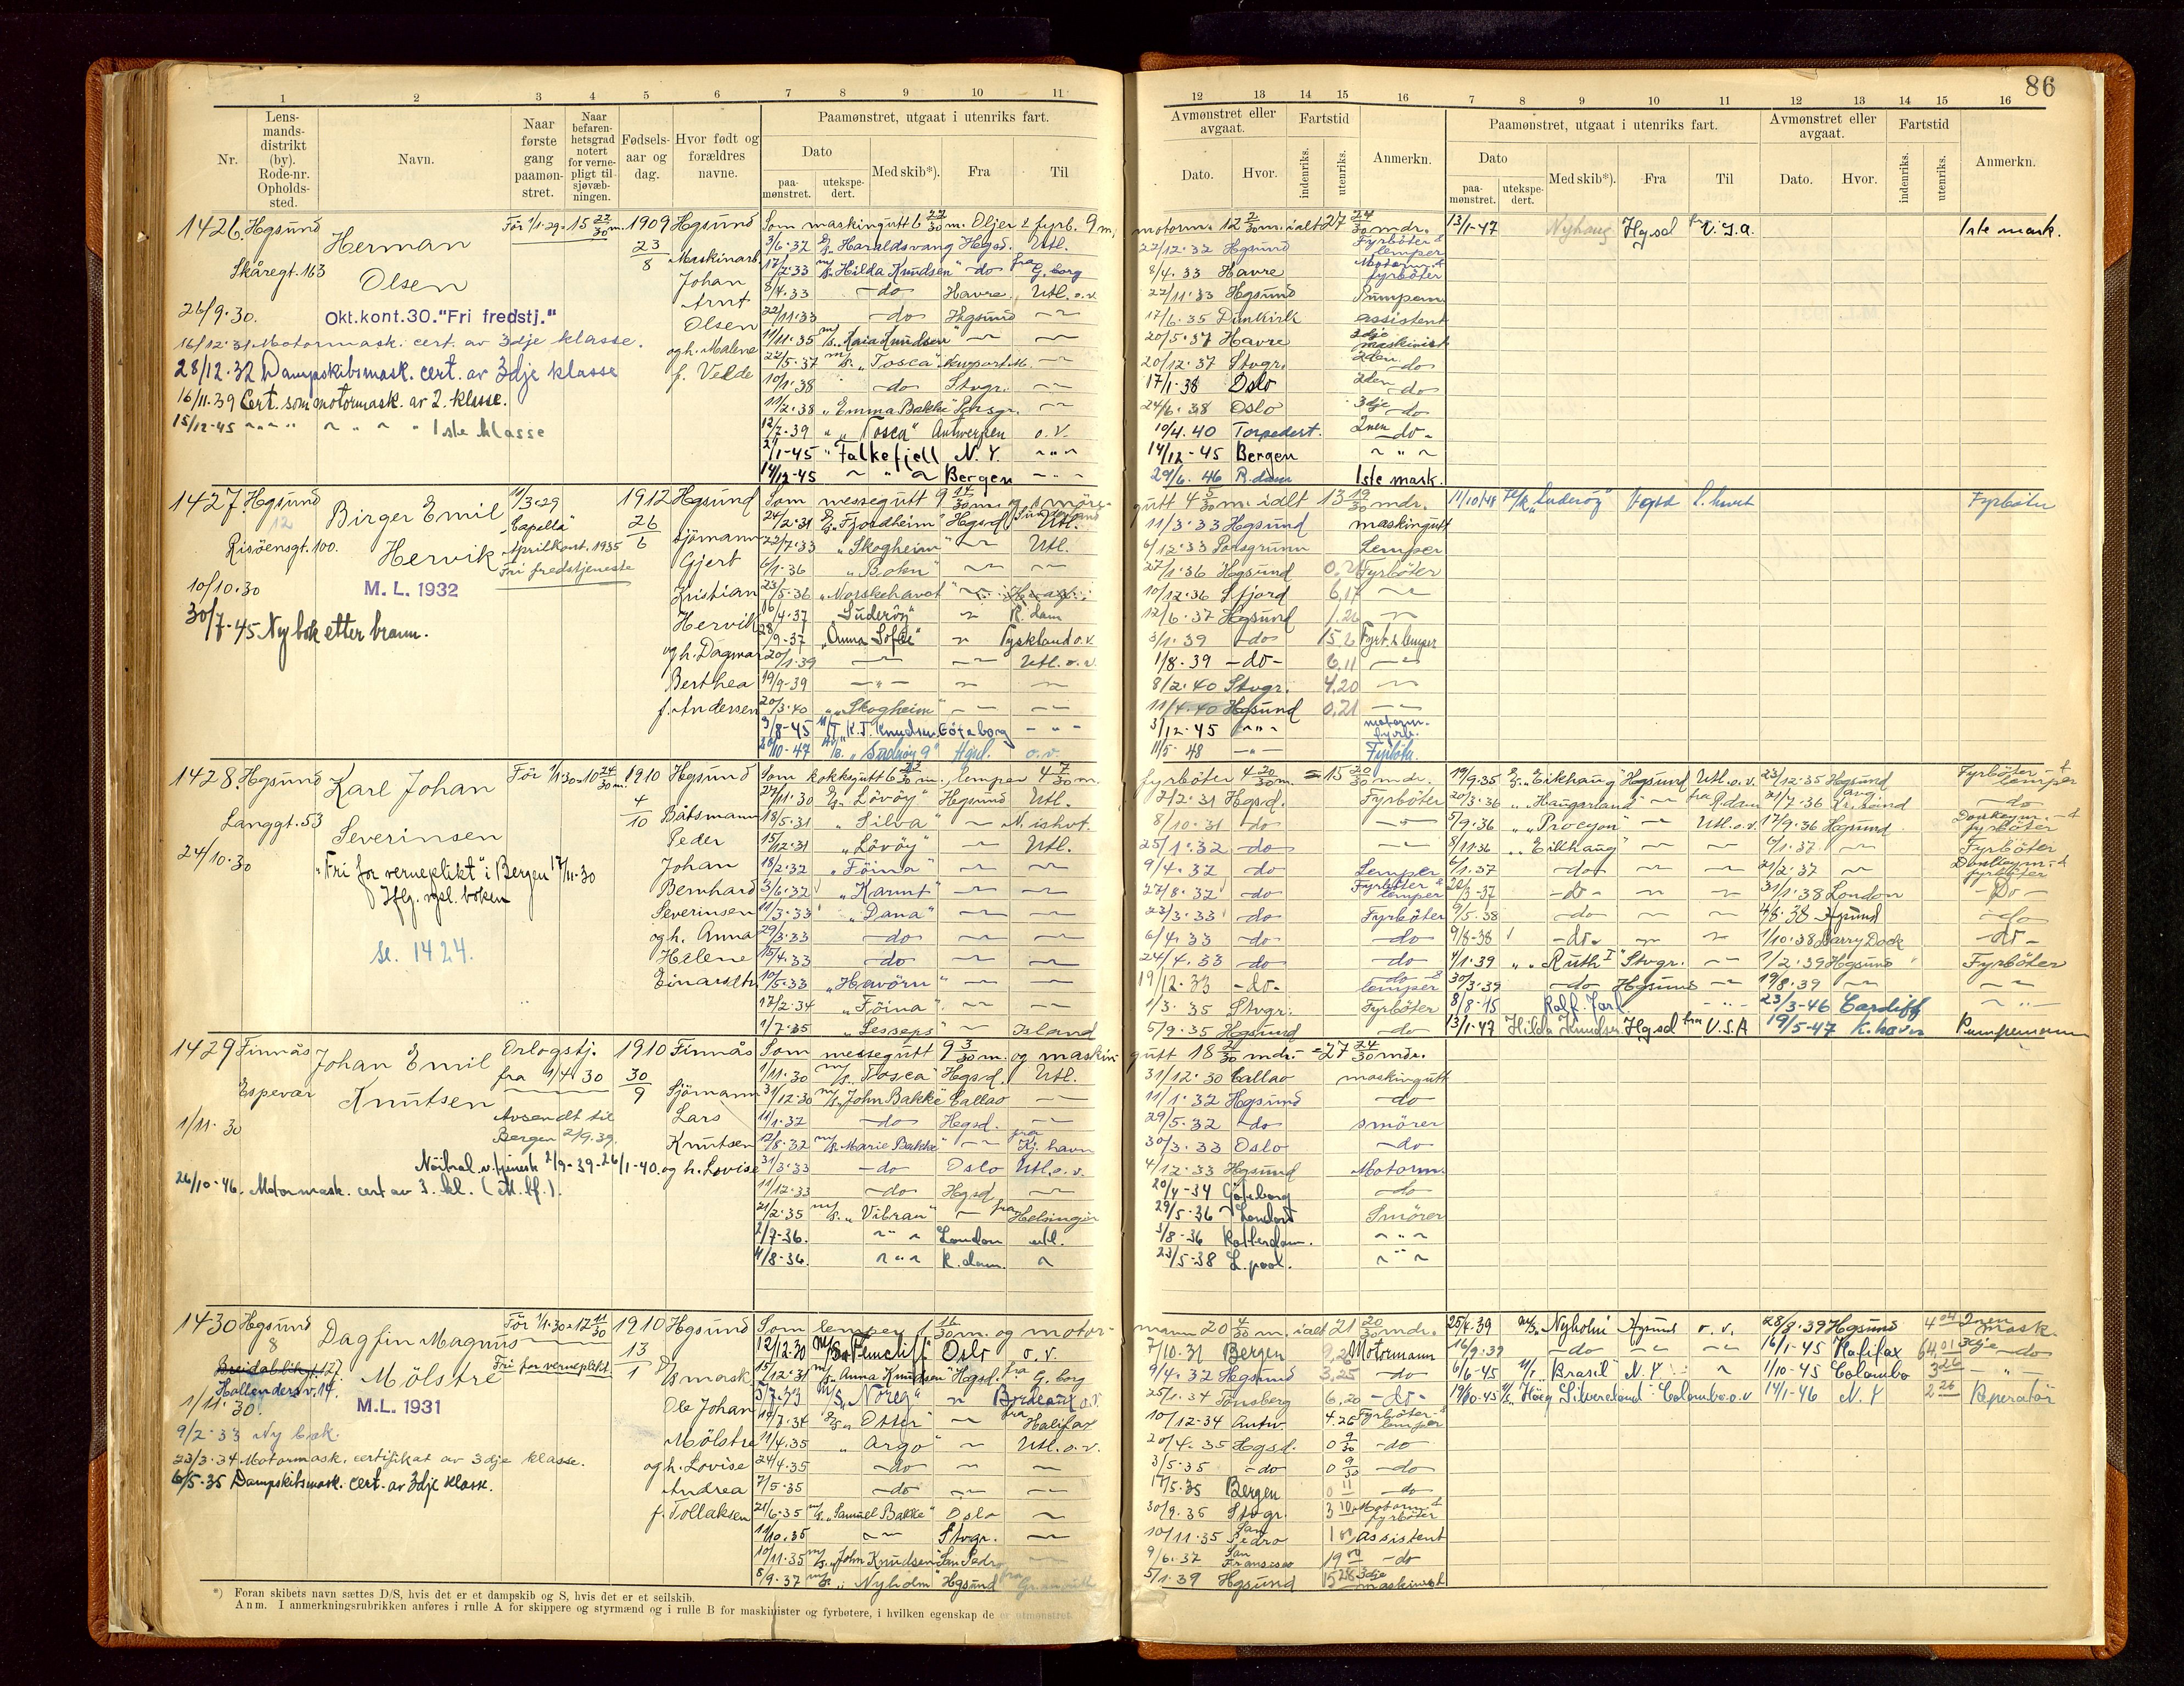 86
1 2 3 4 5 6 7 8 9 10 11
12 13 14 15 16 7 8 9 10 11 12 13 14 15 16
Nr.
Lens-
mands-
distrikt
(by).
Rode-nr.
Opholds-
sted.
Navn.
Naar
første
gang
paamøn-
stret.
Naar
befaren-
hetsgrad
notert
for verne-
pligt til
sjøvæb-
ningen.
Fødsels-
aar og
dag.
Hvor født og
forældres
navne.
Paamønstret, utgaat i utenriks fart.
Dato
paa-
mønstret.
utekspe-
dert.
Med skib*).
Fra
Til
Avmønstret eller
avgaat.
Dato.
Hvor.
Fartstid
indenriks.
utenriks.
Anmerkn.
Paamønstret, utgaat i utenriks fart.
Dato
paa-
mønstret.
utekspe-
dert.
Med skib*).
Fra
Til
Avmønstret eller
avgaat.
Dato.
Hvor.
Fartstid
indenriks.
utenriks.
Anmerkn.
1426. Hgsund
Skåregt. 163
Herman
Olsen
26/9.30.
Okt.kont.30."Fri fredstj."
16/12.31 Motormask. cert. av 3dje klasse.
28/12.32 Dampskibsmask. cert. av 3dje klasse
16/11.39 Cert. som motormask. av 2. klasse.
15/12-45 " " " 1ste klasse
För 1/1.29 = 15 22/30 m.
1909
23/8
Hgsund
Maskinarb.
Johan
Arnt
Olsen
og h. Malene
f. Velde
Som maskingutt 6 22/30 m. Oljer & fyrb. 9 m.
3/6.32 D/S Haraldsvang Hgsd. Utl.
17/2.33 M/S "Hilda Knudsen" do fra G.borg
8/4.33 do Havre Utl. o.v.
22/11.33 do Hgsund
11/11.35 M/S "Kaia Knudsen"
22/5.37 M/S "Tosca"
10/1.38 do Stvgr.
11/2.38 "Emma Bakke"
12/7.39 " "Tosca" Antwerpen o.v.
2/1-45 "Falkefjell N.Y.
14/12-45 Bergen
motorm. 12 2/30 m. ialt 27 24/30 mdr.
22/12.32 Hgsund Fyrböter & lemper
8/4.33 Havre Motorm. & fyrböter
22/11.33 Hgsund Pumpem.
17/6.35 Dunkirk assistent
20/5.37 Havre 3dje maskinist
20/12.37 Stvgr. 2den do
17/1.38 Oslo 2den do
24/6.38 Oslo 3dje do
19/4.40 Torpedert. 2nen do
14/12-45 Bergen " " "
29/6.46 R.dam 1ste mask.
13/1-47 Nyhaug Hgsd fra U.S.A. 1ste mask.
1427. Hgsund
12
Risöensgt. 100.
Birger Emil
Hervik
10/10.30
M. L. 1932
30/7-45 Ny bok etter brann.
11/3.29
"Capella"
Aprilkont. 1935
Fri fredstjeneste
1912
26/6
Hgsund
Sjömann
Gjert
Kristian
Hervik
og h. Dagmar
Berthea
f. Andersen
Som messegutt 9 14/30 m. og smöre-
24/2.31 D/S "Fjordheim" Hgsd. Utl.
22/7.33 "Skogheim" Utl.
6/1.36 "Bokn"
23/5.36 "Norskehavet"
16/4.37 "Suderöy" R.dam
28/9-37 "Anna Sofie" Tyskland o.v.
20/1.39 Utl. o.v.
19/9-39
20/3.40 "Skogheim"
9/8-45 M/T K.J. Knudsen Göteborg
2/10-47 "Suderöy 9" Hgsd. o.v.
gutt 4 5/30 m. ialt 13 19/30 mdr.
11/3.33 Hgsund maskingutt
6/12.33 Porsgrunn Lemper
27/1.36 Hgsund 0,21 Fyrböter
10/12.36 Sfjord 6,17
12/6.37 Hgsund 1.26
3/1.39 do 15.2 Fyrb. & lemper
1/8-39 do 6,11
8/2.40 Stvgr. 4.20
11/4.40 Hgsund 0,21
3/12-45 " " motorm. fyrb.
11/5.48 Fyrböter
11/10.48 "Suderöy" Fyrböter
1428. Hgsund
Langgt. 53
Karl Johan
Severinsen
24/10.30
"Fri for verneplikt" i Bergen 17/11-30
Iflg. vpl. boken
se. 1424.
För 1/1.30 = 10 24/30 m.
1910
4/10
Hgsund
Båtsmann
Peder
Johan
Bernhard
Severinsen
og h. Anna
Helene
Einarsdtr.
Som kokksgutt 6 23/30 m. lemper 4 7/30 m.
27/11.30 D/S "Lövöy" Hgsund Utl.
18/5.31 "Silva" N. ishvt.
15/12.31 "Lövöy" Utl.
18/2.32 "Föina"
3/6.32 "Karmt"
11/3.33 "Dana"
29/3.33 do
15/4.33 do
10/5.33 "Havörn"
17/2.34 "Föina"
1/7.35 "Lesseps" Island
fyrböter 4 20/30 m. = 15 20/30 mdr.
7/2.31 Hgsd. Fyrböter
8/10.31 do
25/1.32 do
9/4.32 do Lemper
27/8.32 do Fyrböter & lemper
23/3.33 do Fyrböter
6/4.33 do do
24/4.33 do do
19/12.33 do do & lemper
1/3.35 Stvgr. Fyrböter
5/9.35 Hgsund do
19/9.35 D/S "Eikhaug" Hgsund Utl. o.v. 23/12.35 Hgsund Fyrböter & lemper
20/3.36 " "Haugarland" fra R.dam 21/7.36 Kr.sand do
5/9.36 " "Procyon" Utl. o.v. 17/9.36 Hgsund Donkeym. & fyrböter
8/11.36 " "Eikhaug" 6/1.37 Fyrböter
6/1.37 do 21/2.37 Donkeym. & fyrböter
22/3-37 do 31/1.38 London Do
9/5.38 do 4/8.38 Hgsund do
9/8-38 do 1/10.38 Barry Dock do
4/1.39 " "Ruth I" Stvgr. 1/2.39 Hgsund Fyrböter
30/3.39 do Hgsund 19/8.39
8/8-45 Rolf Jarl 23/3-46 Cardiff
13/1.47 Hilda Knudsen Hgsd fra U.S.A 19/5-47 K.havn Pumpemann
1429 Finnås
Espevær
Johan Emil
Knutsen
1/11.30
Orlogstj.
fra 1/4 30
Avsendt til
Bergen 2/9.39.
Nöitral.v.tjenest 2/9-39-26/1-40.
26/10-46. Motormask. cert av 3. kl. (M.hf.).
1910
30/9
Finnås
Sjömann
Lars
Knutsen
og h. Lovise
Som messegutt 9 3/30 m. og maskin-
1/11.30 M/S "Tosca" Hgsd. Utl.
31/12.30 M/S John Bakke Callao
11/1.32 do Hgsd.
12/8.32 M/S Marie Bakke fra Kj.havn
31/3.33 do Oslo Utl. o.v.
11/12.33 do Hgsd
21/2.35 M/S "Vibran" fra Helsingör
2/7-36. London utl.
4/8-36. R.dam.
gutt 18 21/30 mdr. = 27 24/30 mdr.
31/12.30 Callao maskingutt
11/1.32 Hgsund do
29/5.32 do smörer
30/3.33 Oslo do
4/12.33 Hgsund Motorm.
20/4-34 Göteborg do
29/5-36 London Smörer
3/8-36 Rotterdam. " " "
23/5-38 L.pool. " " "
1430 Hgsund
8
Breidablikgt. 127.
Hallenders v. 14.
Dagfin Magnus
Mölstre
1/11.30.
M. L. 1931
9/2.33 Ny bok.
23/3.34 Motormask. certifikat av 3dje klasse.
6/5.35 Dampskibsmask. cert. av 3dje klasse.
För 1/1.30 = 12 11/30
Fri for verneplikt
1910
13/1
Hgsund
D/S mask
Ole Johan
Mölstre
og h. Lovise
Andrea
f. Tollaksen
Som lemper 1 16/30 m. og motor-
12/12.30 M/S Ferncliff Oslo o.v.
15/12.31 M/S "Anna Knudsen" Hgsd. fra G.borg
3/7.33 M/S "Noreg" Bordeaux o.v.
19/7.34 D/S "Otter" fra Halifax
11/4.35 "Argo" Utl. o.v.
24/4.35 do
7/5.35 do
21/6.35 M/S "Samuel Bakke" Oslo
11/10.35 Stvgr.
10/11.35 M/S "John Knudsen" San Pedro
8/9.37 M/S "Nyholm" Hgsund fra
mann 20 4/30 m. ialt 21 20/30 mdr.
7/10.31 Bergen 9,26 Motormann
9/4.32 Hgsund 3,25 do
25/1.34 Tönsberg 6,20 do
10/12.34 Antw. 4.26 Fyrböter & lemper
20/4.35 Hgsd. 0 9/30 do
3/5.35 do 0 9/30 do
17/5.35 Bergen 0 11 do
30/9.35 Stvgr. 3 10 Motorm. & fyrböter
10/11.35 San Pedro 1 assistent
9/6.37 San Fransisco 19 do
5/1.39 Hgsund 15 28 3dje maskinist
25/4.39 M/S Nyholm Hgsund o.v. 28/8.39 Hgsund 4 04 2nen mask.
16/9.39 do 16/1-45 Halifax 64,01 3dje do
6/6-45 M/T "Brasil" N.Y. 1/10-45 Colombo 3 26
19/10-45 M/S Höeg Silverland Colombo o.v 14/1-46 N.Y 2 26 Reperatör
*) Foran skibets navn sættes D/S, hvis det er et dampskib og S, hvis det er et seilskib.
Anm. I anmerkningsrubrikken anføres i rulle A for skippere og styrmænd og i rulle B for maskinister og fyrbøtere, i hvilken egenskap de er utmønstret